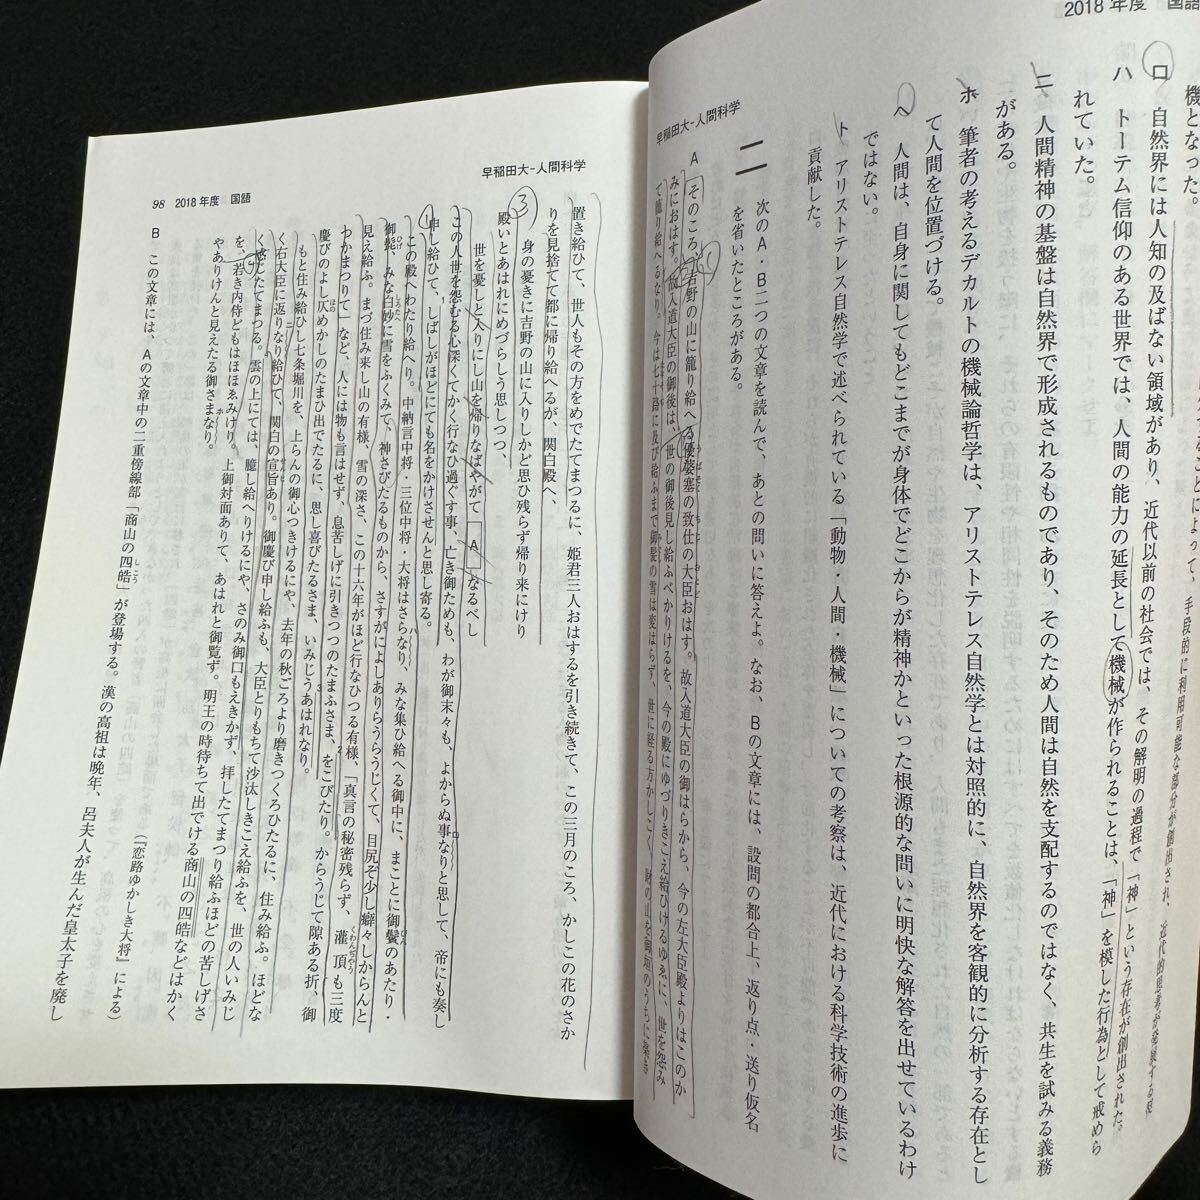 2018年度 国語
機となった。
ロ 自然界には人知の及ばない領域があり、近代以前の社会では、その解明の過程で「神」という存在が創出された。
ハ トーテム信仰のある世界では、人間の能力の延長として機械が作られることは、「神」を模した行為として戒めら
れていた。
ニ 人間精神の基盤は自然界で形成されるものであり、そのため人間は自然を支配するのではなく、共生を試みる義務
がある。
ホ 筆者の考えるデカルトの機械論哲学は、アリストテレス自然学とは対照的に、自然界を客観的に分析する存在とし
て人間を位置づける。
ヘ 人間は、自身に関してもどこまでが身体でどこからが精神かといった根源的な問いに明快な解答を出せているわけ
ではない。
ト アリストテレス自然学で述べられている「動物・人間・機械」についての考察は、近代における科学技術の進歩に
貢献した。
早稲田大-人間科学
二 次のA・B二つの文章を読んで、あとの問いに答えよ。なお、Bの文章には、設問の都合上、返り点・送り仮名
を省いたところがある。
A そのころ、吉野の山に籠り給へる優婆塞の致仕の大臣おはす。故入道大臣の御はらから、今の左大臣殿よりはこのか
みにおはす。故入道大臣の御後は、世の御後見し給ふべかりけるを、今の殿にゆづりきこえ給ひけるゆゑに、世を怨み
て籠り給へるなり。今は七十路に及び給ふまで御髪の雪は変はらず、世に経る方かしこく、
早稲田大-人間科学
98 2018年度 国語
置き給ひて、世人もその方をめでたてまつるに、姫君三人おはするを引き続きて、この三月のころ、かしこの花のさか
りを見捨てて都に帰り給へるが、関白殿へ、
③ 身の憂きに吉野の山に入りしかど思ひ残らず帰り来にけり
殿いとあはれにめづらしう思しつつ、
世を憂しと入りにし山を帰りなばやがて A なるべし
この人世を怨むる心深くてかく行なひ過ぐす事、亡き御ためも、わが御末々も、よからぬ事なりと思して、帝にも奏し
申し給ひて、しばしがほどにても名をかけさせんと思し寄る。
この殿へわたり給へり。中納言中将・三位中将・大将はさらなり、みな集ひ給へる御中に、まことに御鬢のあたり・
御髭、みな白妙に雪をふくみて、神さびたるものから、さすがによしありらうらうじくて、目尻ぞ少し癖々しからんと
見え給ふ。まづ住み来し山の有様、雪の深さ、この十六年がほど行なひつる有様、「真言の秘密残らず、灌頂も三度
わかまつりて」など、人には物も言はせず、息苦しげに引きつつのたまふさま、をこびたり。からうじて隙ある折、御
慶びのよし仄めかしのたまひ出でたるに、思し喜びたるさま、いみじうあはれなり。
もと住み給ひし七条堀川を、上らんの御心つきけるにや、去年の秋ごろより磨きつくろひたるに、住み給ふ。ほどな
く右大臣に返りなり給ひて、関白の宣旨あり。御慶び申し給ふも、大臣とりもちて沙汰しきこえ給ふを、世の人いみじ
く感じたてまつる。雲の上にては、臆し給へりけるにや、さのみ御口もえきかず、拝したてまつり給ふほどの苦しげさ
を、若き内侍どもはほほゑみけり。上御対面ありて、あはれと御覧ず。明王の時待ちて出でける商山の四皓などはかく
やありけんと見えたる御さまなり。
(『恋路ゆかしき大将』による)
B この文章には、Aの文章中の二重傍線部「商山の四皓」が登場する。漢の高祖は晩年、呂夫人が生んだ皇太子を廃し